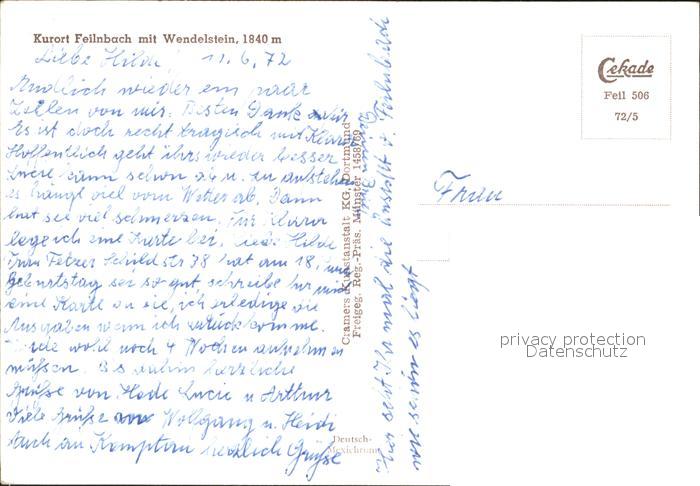 Kurort Feilnbach mit Wendelstein, 1840 m
Liebe Hilde! 11.6.72
Endlich wieder ein paar
Zeilen von mir. Besten Dank
Es ist doch recht tragisch mit Klara
Hoffentlich geht ihrs wieder besser
Lucie kann schon ab u. zu aufstehen
es hängt viel vom Wetter ab. Dann
hat sie viel schmerzen. Für Klara
lege ich eine Karte bei. Liebe Hilde
Frau Fetzer Schildstr 38 hat am 18. Juni
Geburtstag sei so gut schreibe ihr
eine Karte an sie, ich erledige die
Ausgaben wenn ich zurückkomme.
wohl noch 4 Wochen
müssen. Bis dahin herzliche
Grüße von Hede Lucie u Arthur
Viele Grüße von Wolfgang u. Heidi
auch an herzlich Grüße
Cramers Kunstanstalt KG, Dortmund
Freigeg. Reg.-Präs. Münster 1458/69
Deutsch-
Mexichrom
Ihr seht die Ansicht v. Feilnbach
wie schön es liegt
Cekade
Feil 506
72/5
Frau
privacy protection
Datenschutz